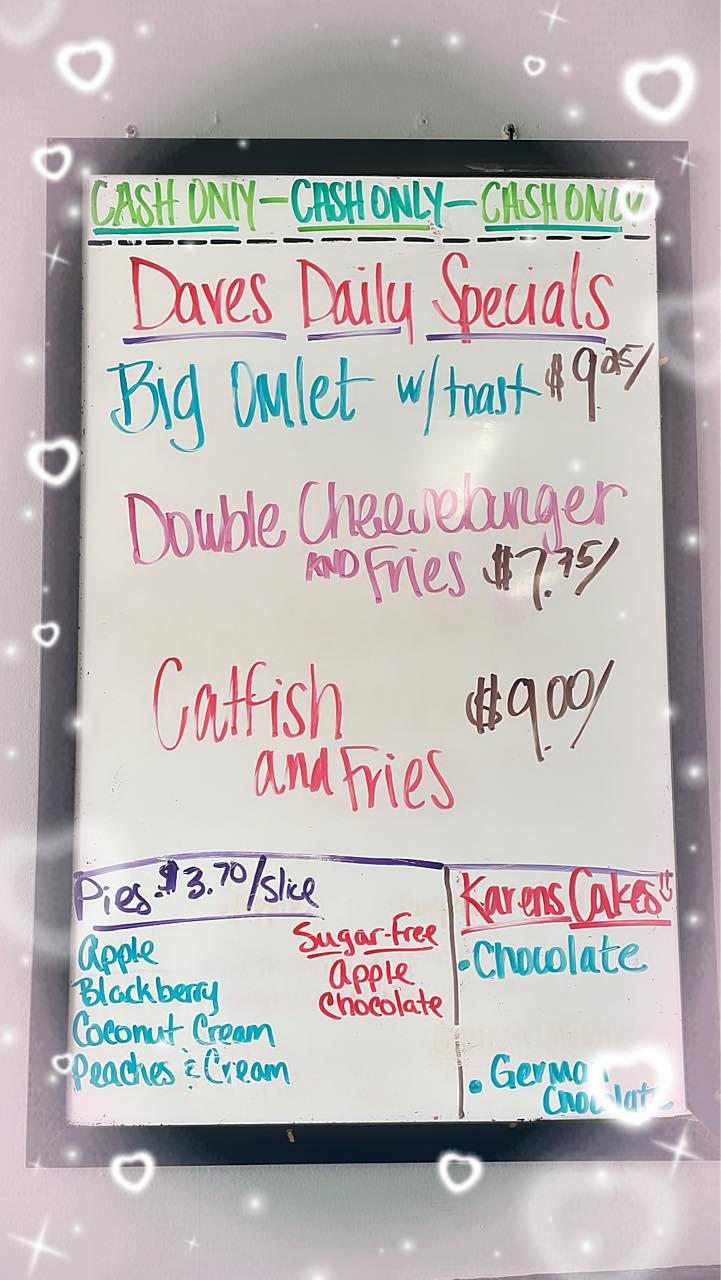 CASH ONLY - CASH ONLY - CASH ONLY
Daves Daily Specials
Big Omlet w/toast $9.25/
Double Cheeseburger
AND Fries $7.75/
Catfish $9.00/
and Fries
Pies $3.70/slice
Apple
Blackberry
Coconut Cream
Peaches & Cream
Sugar-Free
Apple
Chocolate
Karens Cakes
• Chocolate
• German
Chocolate